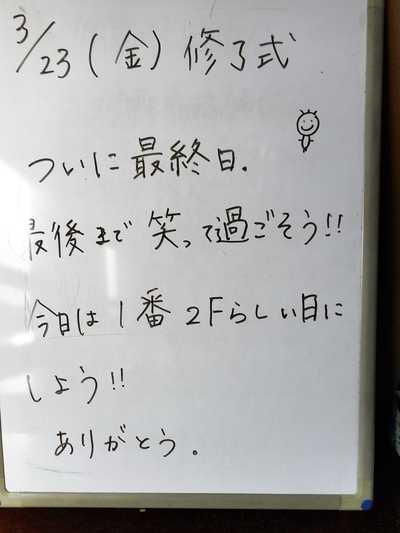 3/23(金) 修了式
ついに最終日.
最後まで笑って過ごそう!!
今日は1番2Fらしい日に
しよう!!
ありがとう。